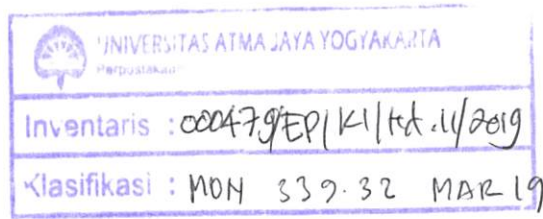 UNIVERSITAS ATMA JAYA YOGYAKARTA
Perpustakaan
Inventaris : 000479/EP/KI/Hd.11/2019
Klasifikasi : MON 339.32 MAR 19